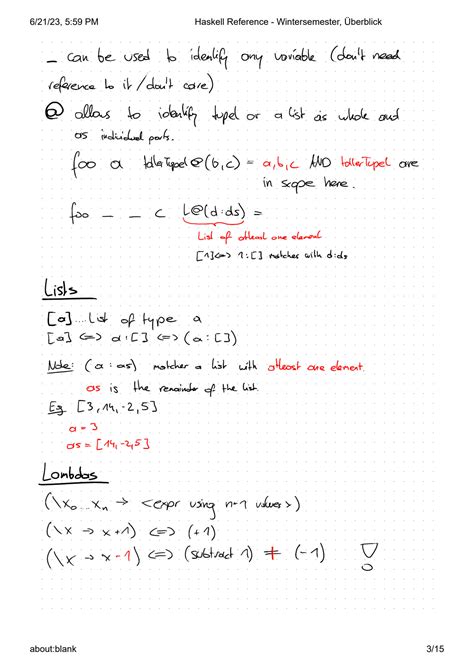 6/21/23, 5:59 PM Haskell Reference - Wintersemester, Überblick
_ can be used to identify any variable (don't need
reference to it / don't care)
@ allows to identify tupel or a list as whole and
as individual parts.
foo a tollerTupel@(b,c) = a,b,c AND tollerTupel are
in scope here.
foo _ _ c L@(d:ds) =
List of atleast one element
[1] <=> 1:[] matches with d:ds
Lists
[a] .... List of type a
[a] <=> a:[] <=> (a:[])
Note: (a:as) matches a list with atleast one element.
as is the remainder of the list.
Eg. [3,14,-2,5]
a = 3
as = [14,-2,5]
Lambdas
(\x₀...xₙ → <expr using n+1 values>)
(\x → x+1) <=> (+1)
(\x → x-1) <=> (subtract 1) ≠ (-1) !
about:blank 3/15